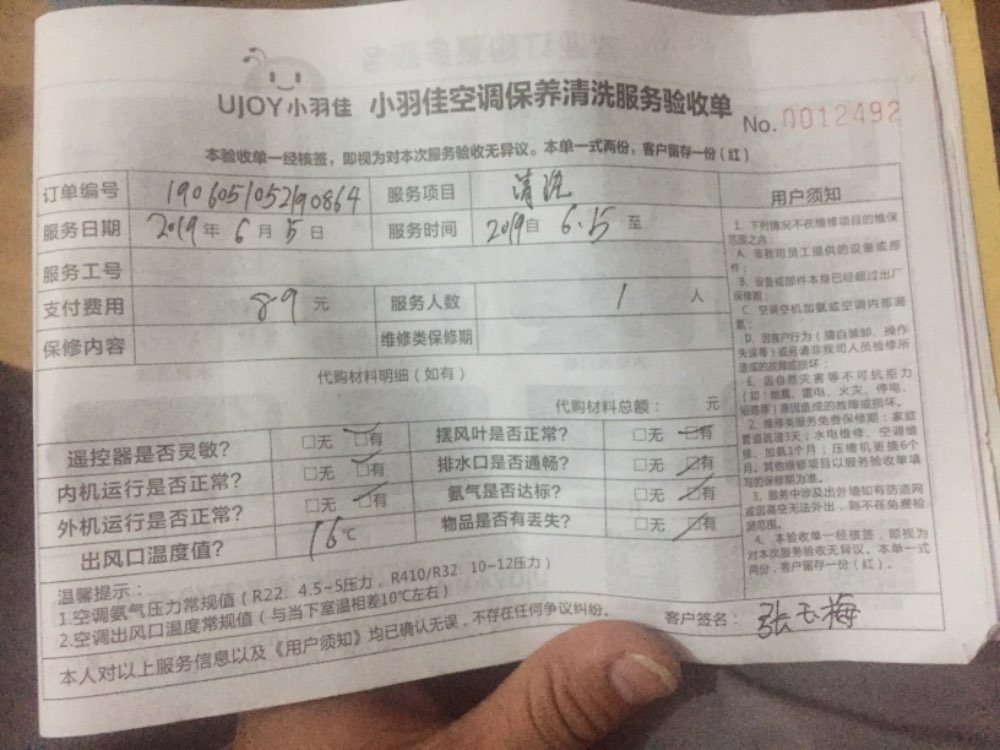 UJOY小羽佳 小羽佳空调保养清洗服务验收单
No.0012492
本验收单一经核签，即视为对本次服务验收无异议。本单一式两份，客户留存一份（红）
订单编号 190605105290864 服务项目 清洗
服务日期 2019年6月5日 服务时间 2019自 6.15 至
服务工号
支付费用 89 元 服务人数 1 人
保修内容 维修类保修期
代购材料明细（如有）
代购材料总额： 元
遥控器是否灵敏？ □无 □有 摆风叶是否正常？ □无 □有
内机运行是否正常？ □无 □有 排水口是否通畅？ □无 □有
外机运行是否正常？ □无 □有 氨气是否达标？ □无 □有
出风口温度值？ 16℃ 物品是否有丢失？ □无 □有
温馨提示：
1.空调氨气压力常规值（R22：4.5~5压力，R410/R32：10~12压力）
2.空调出风口温度常规值（与当下室温相差10℃左右）
本人对以上服务信息以及《用户须知》均已确认无误，不存在任何争议纠纷。
客户签名：张玉梅
用户须知
1、下列情况不在维修项目的维保
范围之内：
A、非我司员工提供的设备或部
件；
B、设备或部件本身已经超过出厂
保修期；
C、空调空机加氨或空调内部漏
氨；
D、因客户行为（擅自装卸、操作
失误等）或另请非我司人员检修所
造成的故障或损坏；
E、因自然灾害等不可抗拒力
（如：地震、雷电、火灾、停电、
短路等）原因造成的故障或损坏。
2、维修类服务免费保修期：家庭
管道疏通3天；水电维修、空调维
修、加氨1个月；压缩机更换6个
月，其他维修项目以服务验收单填
写的保修期为准。
3、服务中涉及出外墙如有防盗网
或因高空无法外出，则不在免费检
测范围。
4、本验收单一经核签，即视为
对本次服务验收无异议。本单一式
两份，客户留存一份（红）。